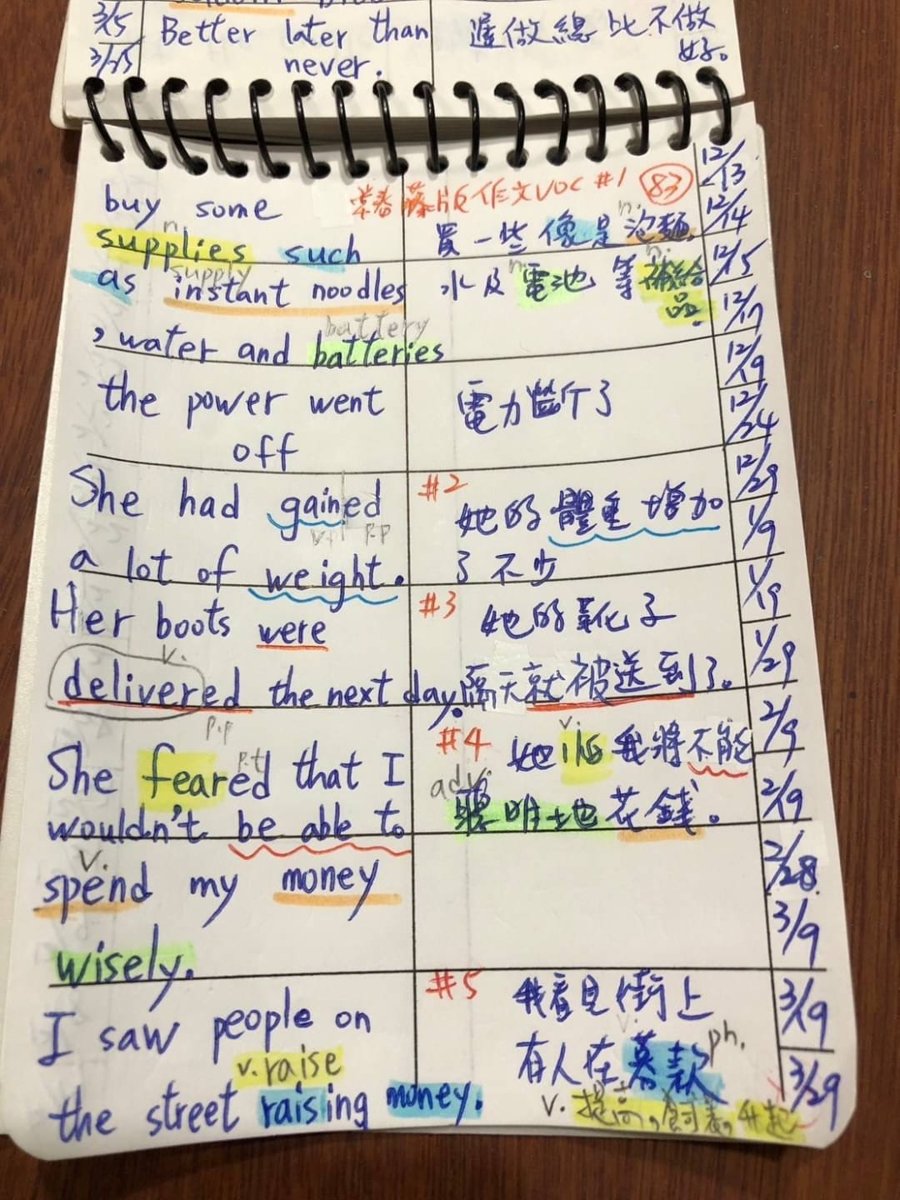 3/5
3/25
Better later than
never.
遲做總比不做
好。
常春藤版作文VOC #1 83
buy some
n.
supplies such
supply
as instant noodles
battery
, water and batteries
買一些像是泡麵
n.
水及電池等補給
n. n.
品.
the power went
off
電力斷了
She had gained
v. p.p
a lot of weight.
#2
她的體重增加
了不少
Her boots were
v.
delivered the next day.
p.p
#3
她的靴子
隔天就被送到了。
She feared that I
p.t
wouldn't be able to
v.
spend my money
wisely.
#4
v.
她怕我將不能
adv.
聰明地花錢。
I saw people on
v. raise
the street raising money.
#5
我看見街上
v. ph.
有人在募款
v. 提高,飼養,升起
12/13
12/14
12/15
12/17
12/19
12/24
12/29
1/9
1/19
1/29
2/9
2/19
2/28
3/9
3/19
3/29